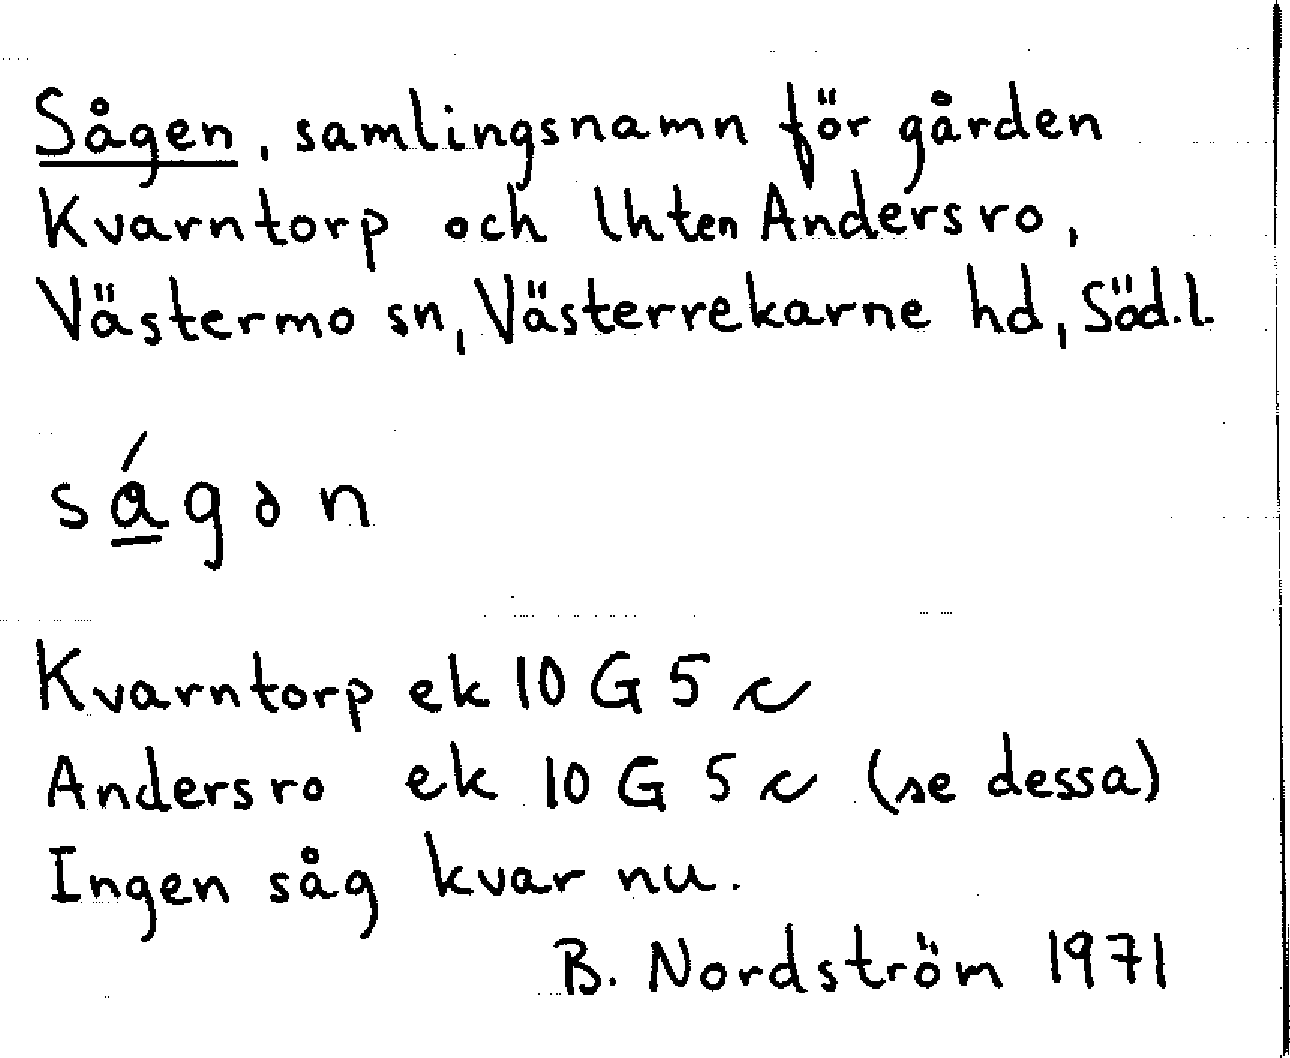 Sågen, samlingsnamn för gården
Kvarntorp och lhten Andersro,
Västermo sn, Västerrekarne hd, Söd.l.
ság∂n
Kvarntorp ek 10 G 5 c
Andersro ek 10 G 5 c (se dessa)
Ingen såg kvar nu.
B. Nordström 1971